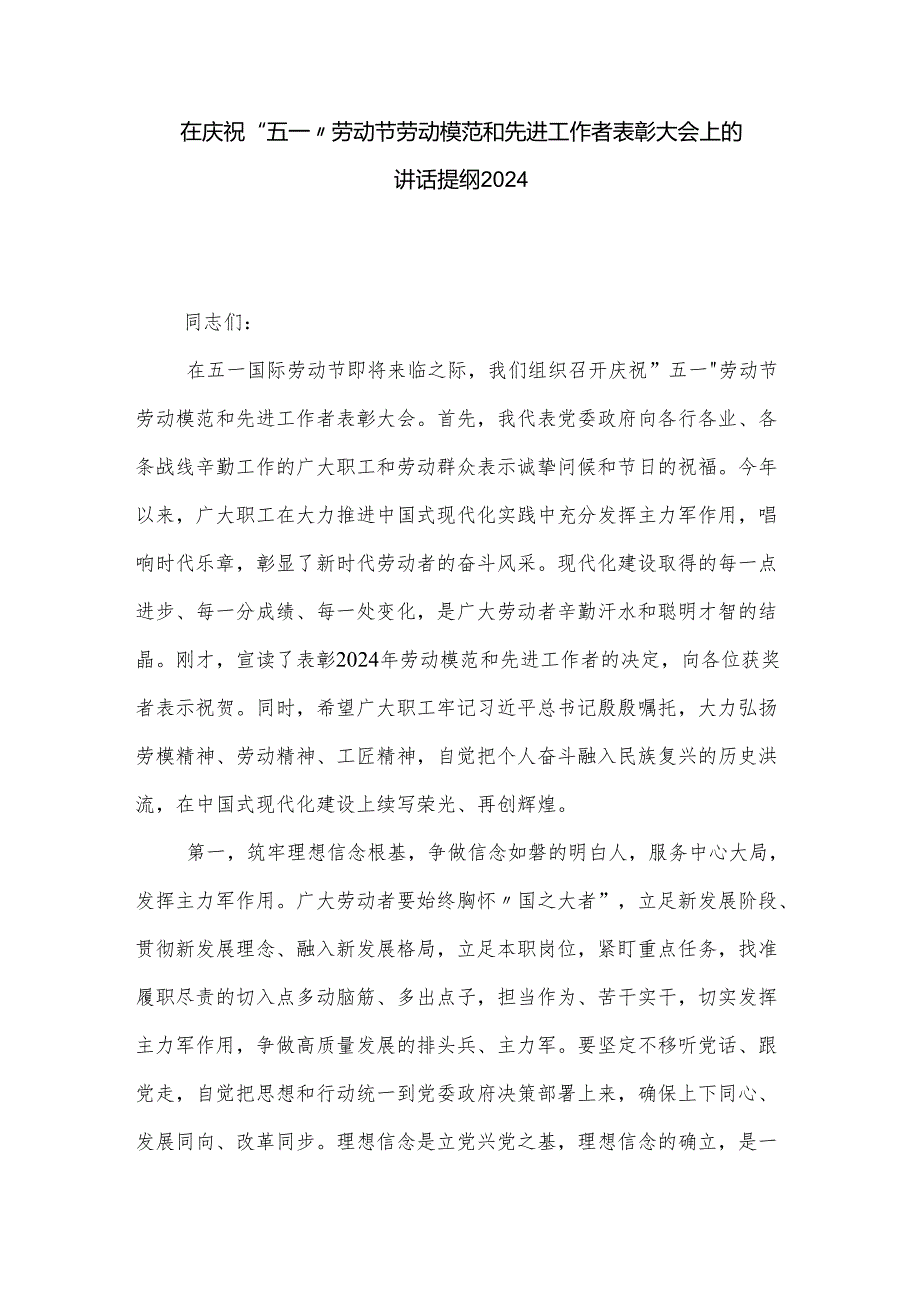 在庆祝“五一〃劳动节劳动模范和先进工作者表彰大会上的
讲话提纲2024
同志们：
在五一国际劳动节即将来临之际，我们组织召开庆祝”五一"劳动节
劳动模范和先进工作者表彰大会。首先，我代表党委政府向各行各业、各
条战线辛勤工作的广大职工和劳动群众表示诚挚问候和节日的祝福。今年
以来，广大职工在大力推进中国式现代化实践中充分发挥主力军作用，唱
响时代乐章，彰显了新时代劳动者的奋斗风采。现代化建设取得的每一点
进步、每一分成绩、每一处变化，是广大劳动者辛勤汗水和聪明才智的结
晶。刚才，宣读了表彰2024年劳动模范和先进工作者的决定，向各位获奖
者表示祝贺。同时，希望广大职工牢记习近平总书记殷殷嘱托，大力弘扬
劳模精神、劳动精神、工匠精神，自觉把个人奋斗融入民族复兴的历史洪
流，在中国式现代化建设上续写荣光、再创辉煌。
第一，筑牢理想信念根基，争做信念如磐的明白人，服务中心大局，
发挥主力军作用。广大劳动者要始终胸怀〃国之大者”，立足新发展阶段、
贯彻新发展理念、融入新发展格局，立足本职岗位，紧盯重点任务，找准
履职尽责的切入点多动脑筋、多出点子，担当作为、苦干实干，切实发挥
主力军作用，争做高质量发展的排头兵、主力军。要坚定不移听党话、跟
党走，自觉把思想和行动统一到党委政府决策部署上来，确保上下同心、
发展同向、改革同步。理想信念是立党兴党之基，理想信念的确立，是一